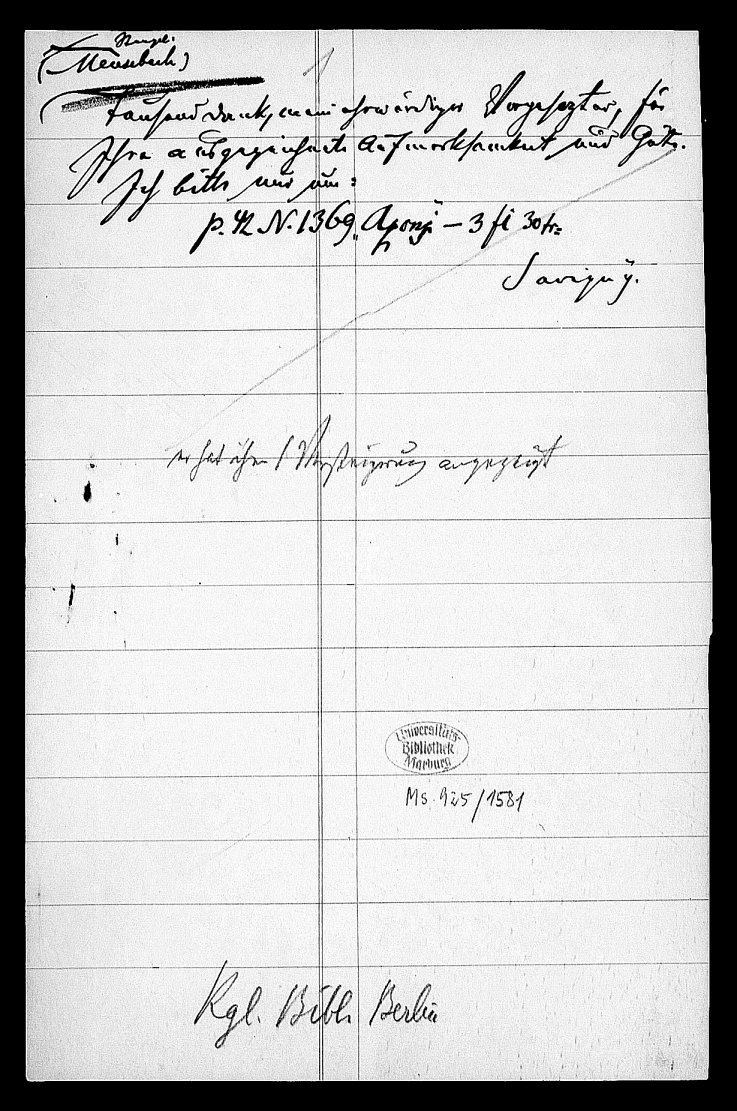 (Meusebach)
Tausend Dank, mein ehrwürdiger Vorgesezter, für
Ihre ausgezeichnete Aufmerksamkeit und Güte.
Ich bitte nur um:
p. 42 N. 1369 – 3 fl 30 kr
Savigny.
er hat ihm 1 Versteigerung angezeigt
Universitäts-
Bibliothek
Marburg
Ms. 925/1581
Kgl. Bibl. Berlin